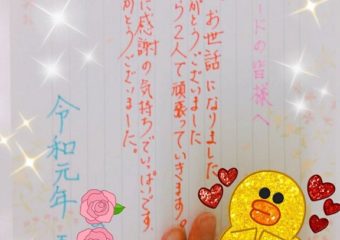 ードの皆様へ
お世話になりました
がとうございました
ら2人で頑張っていきます。
に感謝の気持ちでいっぱいです
がとうございました。
令和元年